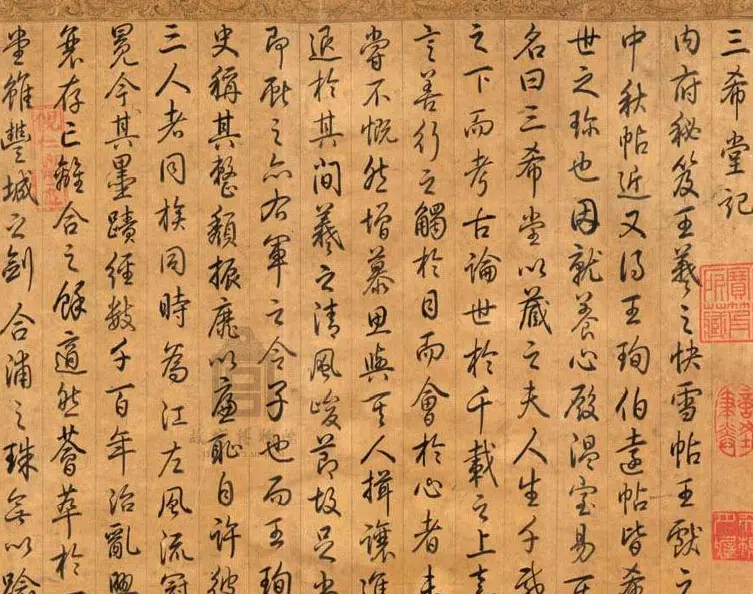 三希堂記
内府秘笈王羲之快雪帖王獻之
中秋帖近又得王珣伯遠帖皆希
世之珍也因就養心殿温室易其
名曰三希堂以藏之夫人生千載
之下而考古論世於千載之上嘉
言善行之觸於目而會於心者未
嘗不慨然增慕思與其人揖讓進
退於其間羲之清風峻節故足尚
即獻之亦右軍之令子也而王珣
史稱其整頽振靡以廉恥自許彼
三人者同族同時為江左風流冠
冕今其墨蹟經數千百年治亂興
衰存亡離合之餘適然薈萃於一
堂雖豐城之劍合浦之珠無以踰